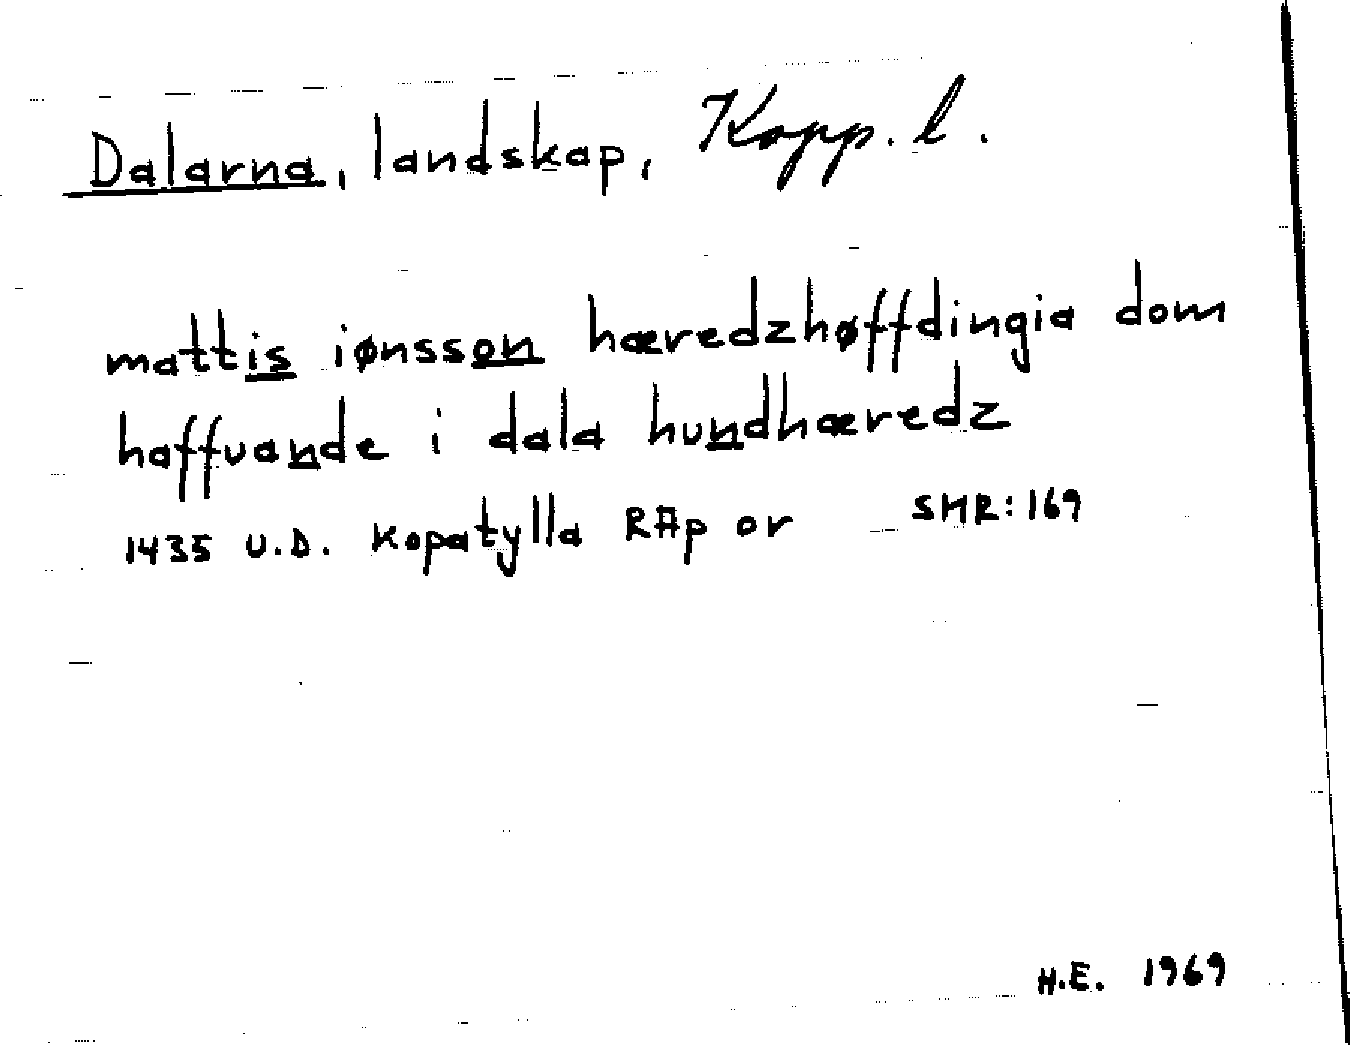 Dalarna, landskap, Kopp. l.
mattis iønsson hæredzhøffdingia dom
haffuande i dala hundhæredz
1435 U.D. Kopatylla RAp or SMR: 169
H.E. 1969